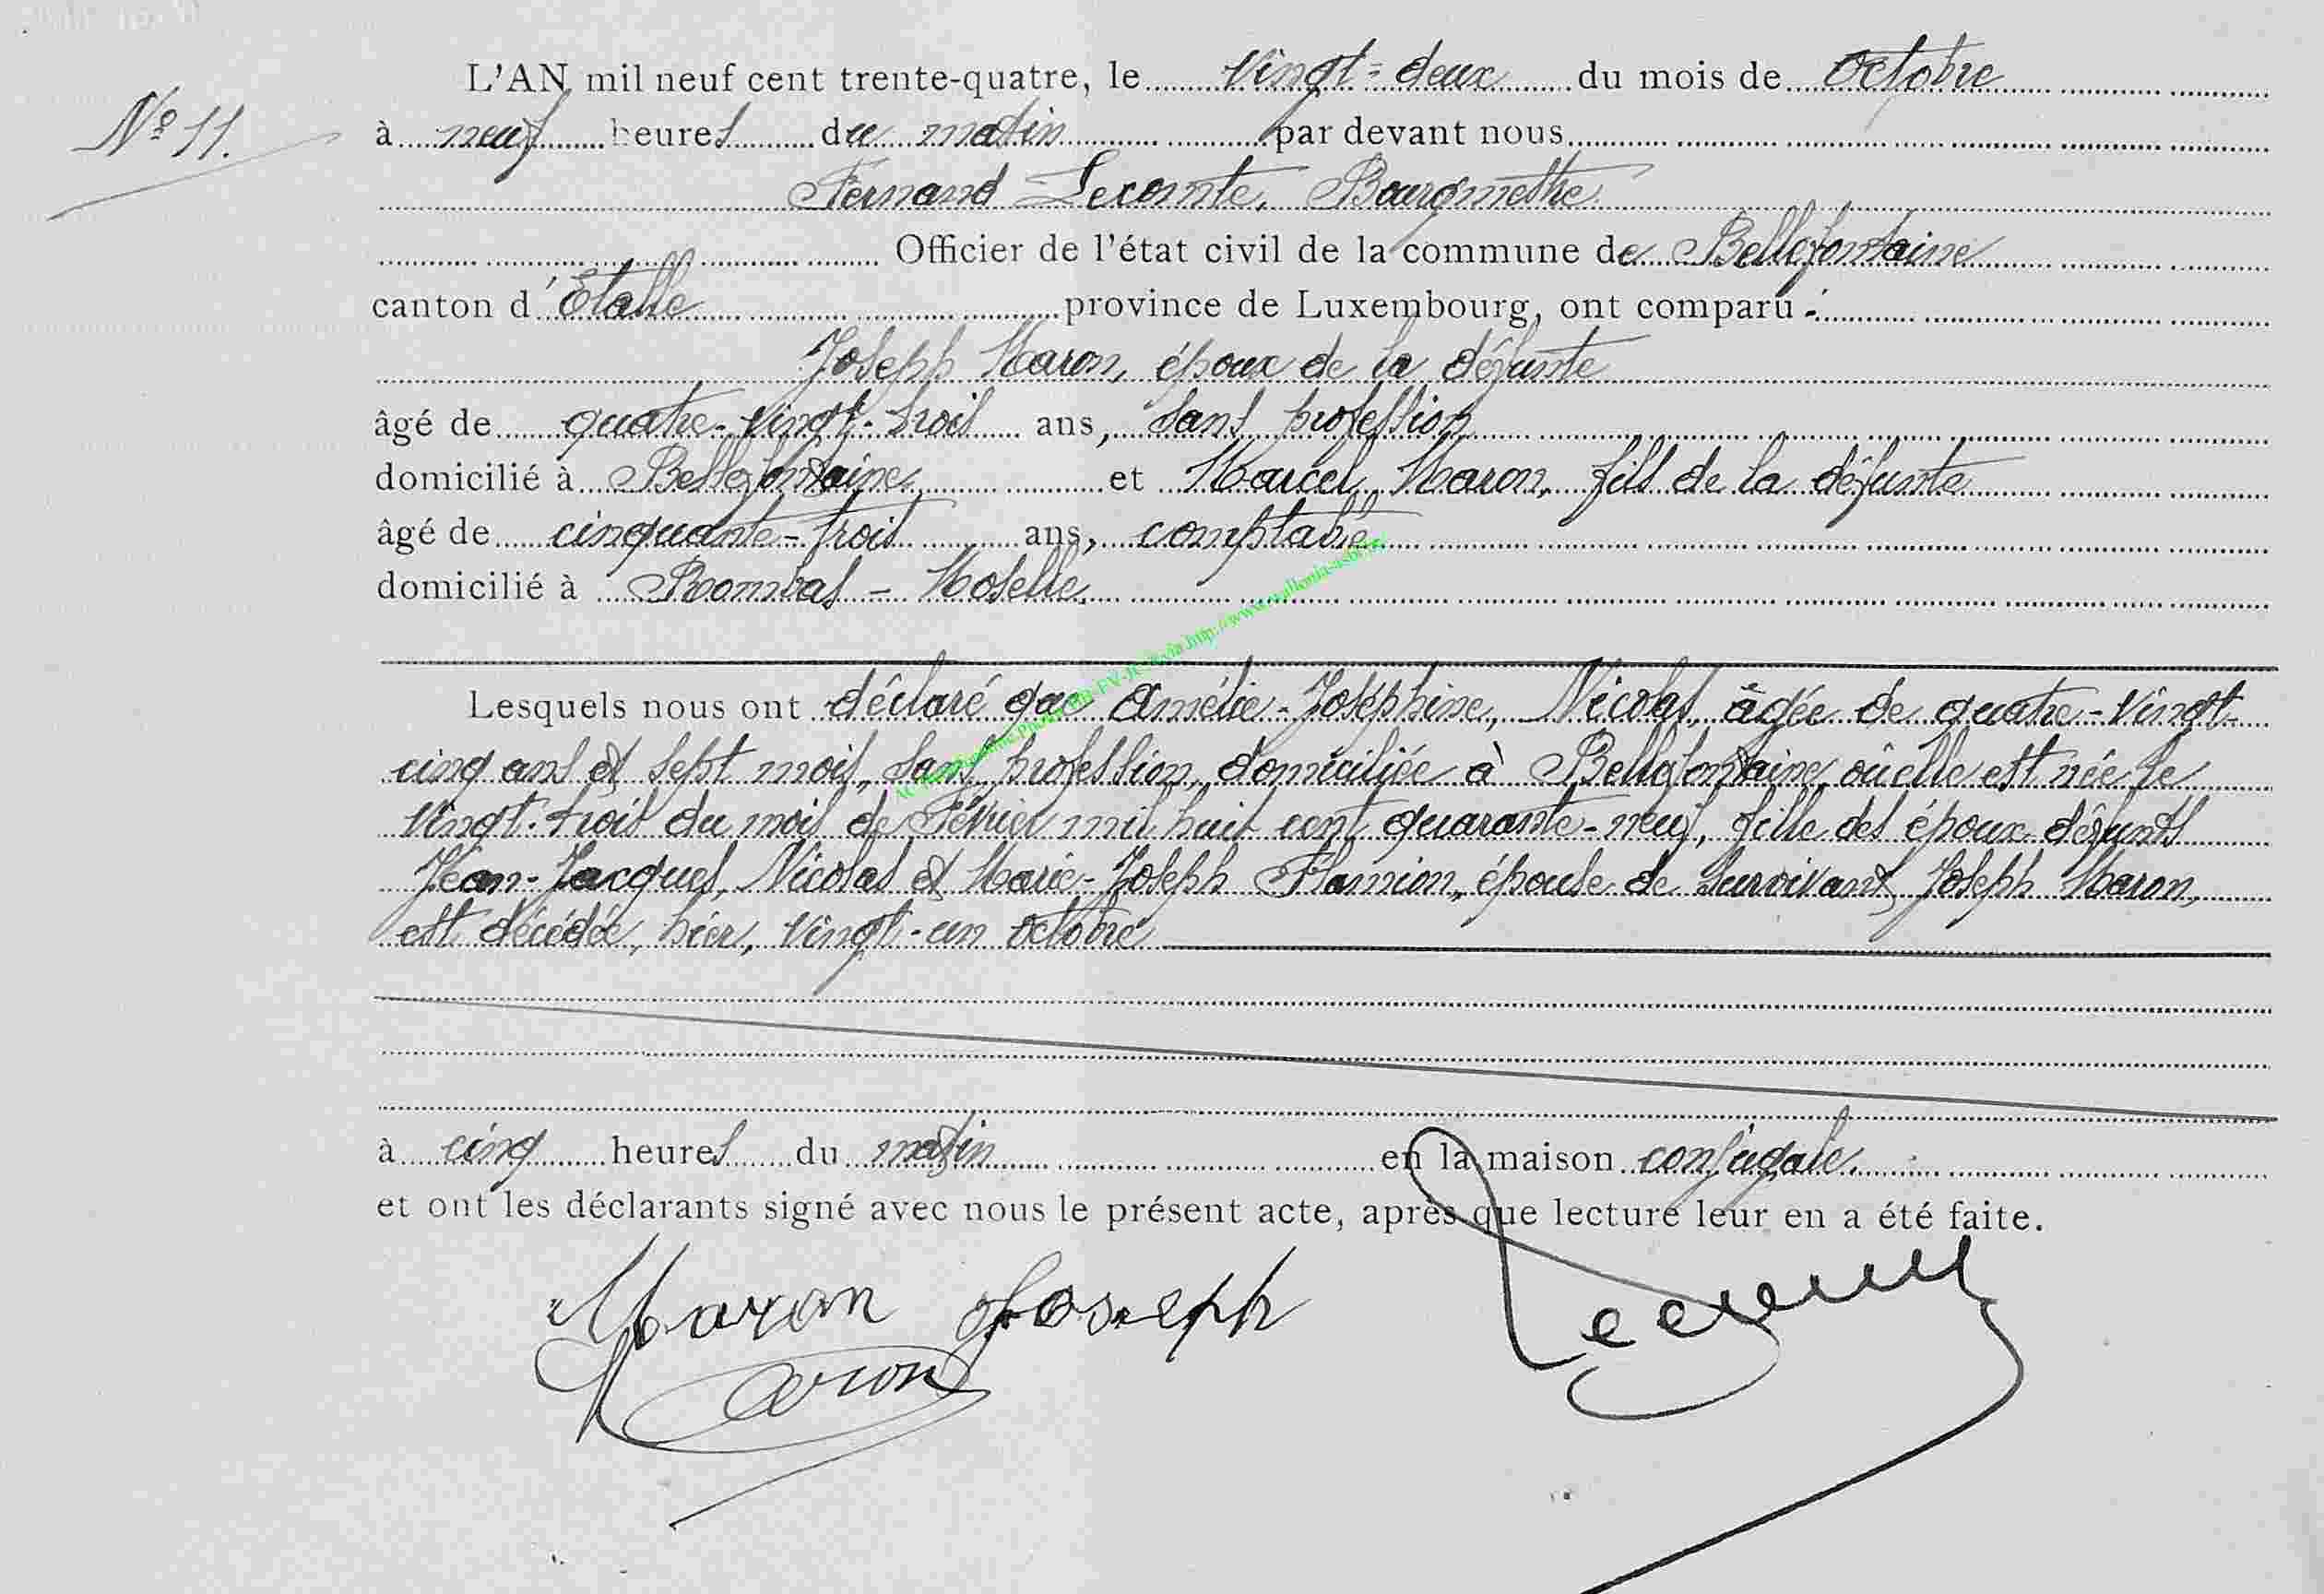 N° 11.
L'AN mil neuf cent trente-quatre, le vingt-deux du mois de Octobre
à neuf heures du matin par devant nous
Fernand Lecomte, Bourgmestre
Officier de l'état civil de la commune de Bellefontaine
canton d'Etalle province de Luxembourg, ont comparu :
Joseph Maron, époux de la défunte
âgé de quatre-vingt-trois ans, sans profession
domicilié à Bellefontaine, et Marcel Maron, fils de la défunte
âgé de cinquante-trois ans, comptable
domicilié à Rombas - Moselle.
Lesquels nous ont déclaré que Amélie-Joséphine, Nicolas, âgée de quatre-vingt-
cinq ans et sept mois, sans profession, domiciliée à Bellefontaine, où elle est née le
vingt-trois du mois de Février mil huit cent quarante-neuf, fille des époux défunts
Jean-Jacques, Nicolas et Marie-Joseph Flamion, épouse de survivant Joseph Maron,
est décédée, hier, vingt-un octobre
à cinq heures du matin en la maison conjugale.
et ont les déclarants signé avec nous le présent acte, après que lecture leur en a été faite.
Maron Joseph
Maron